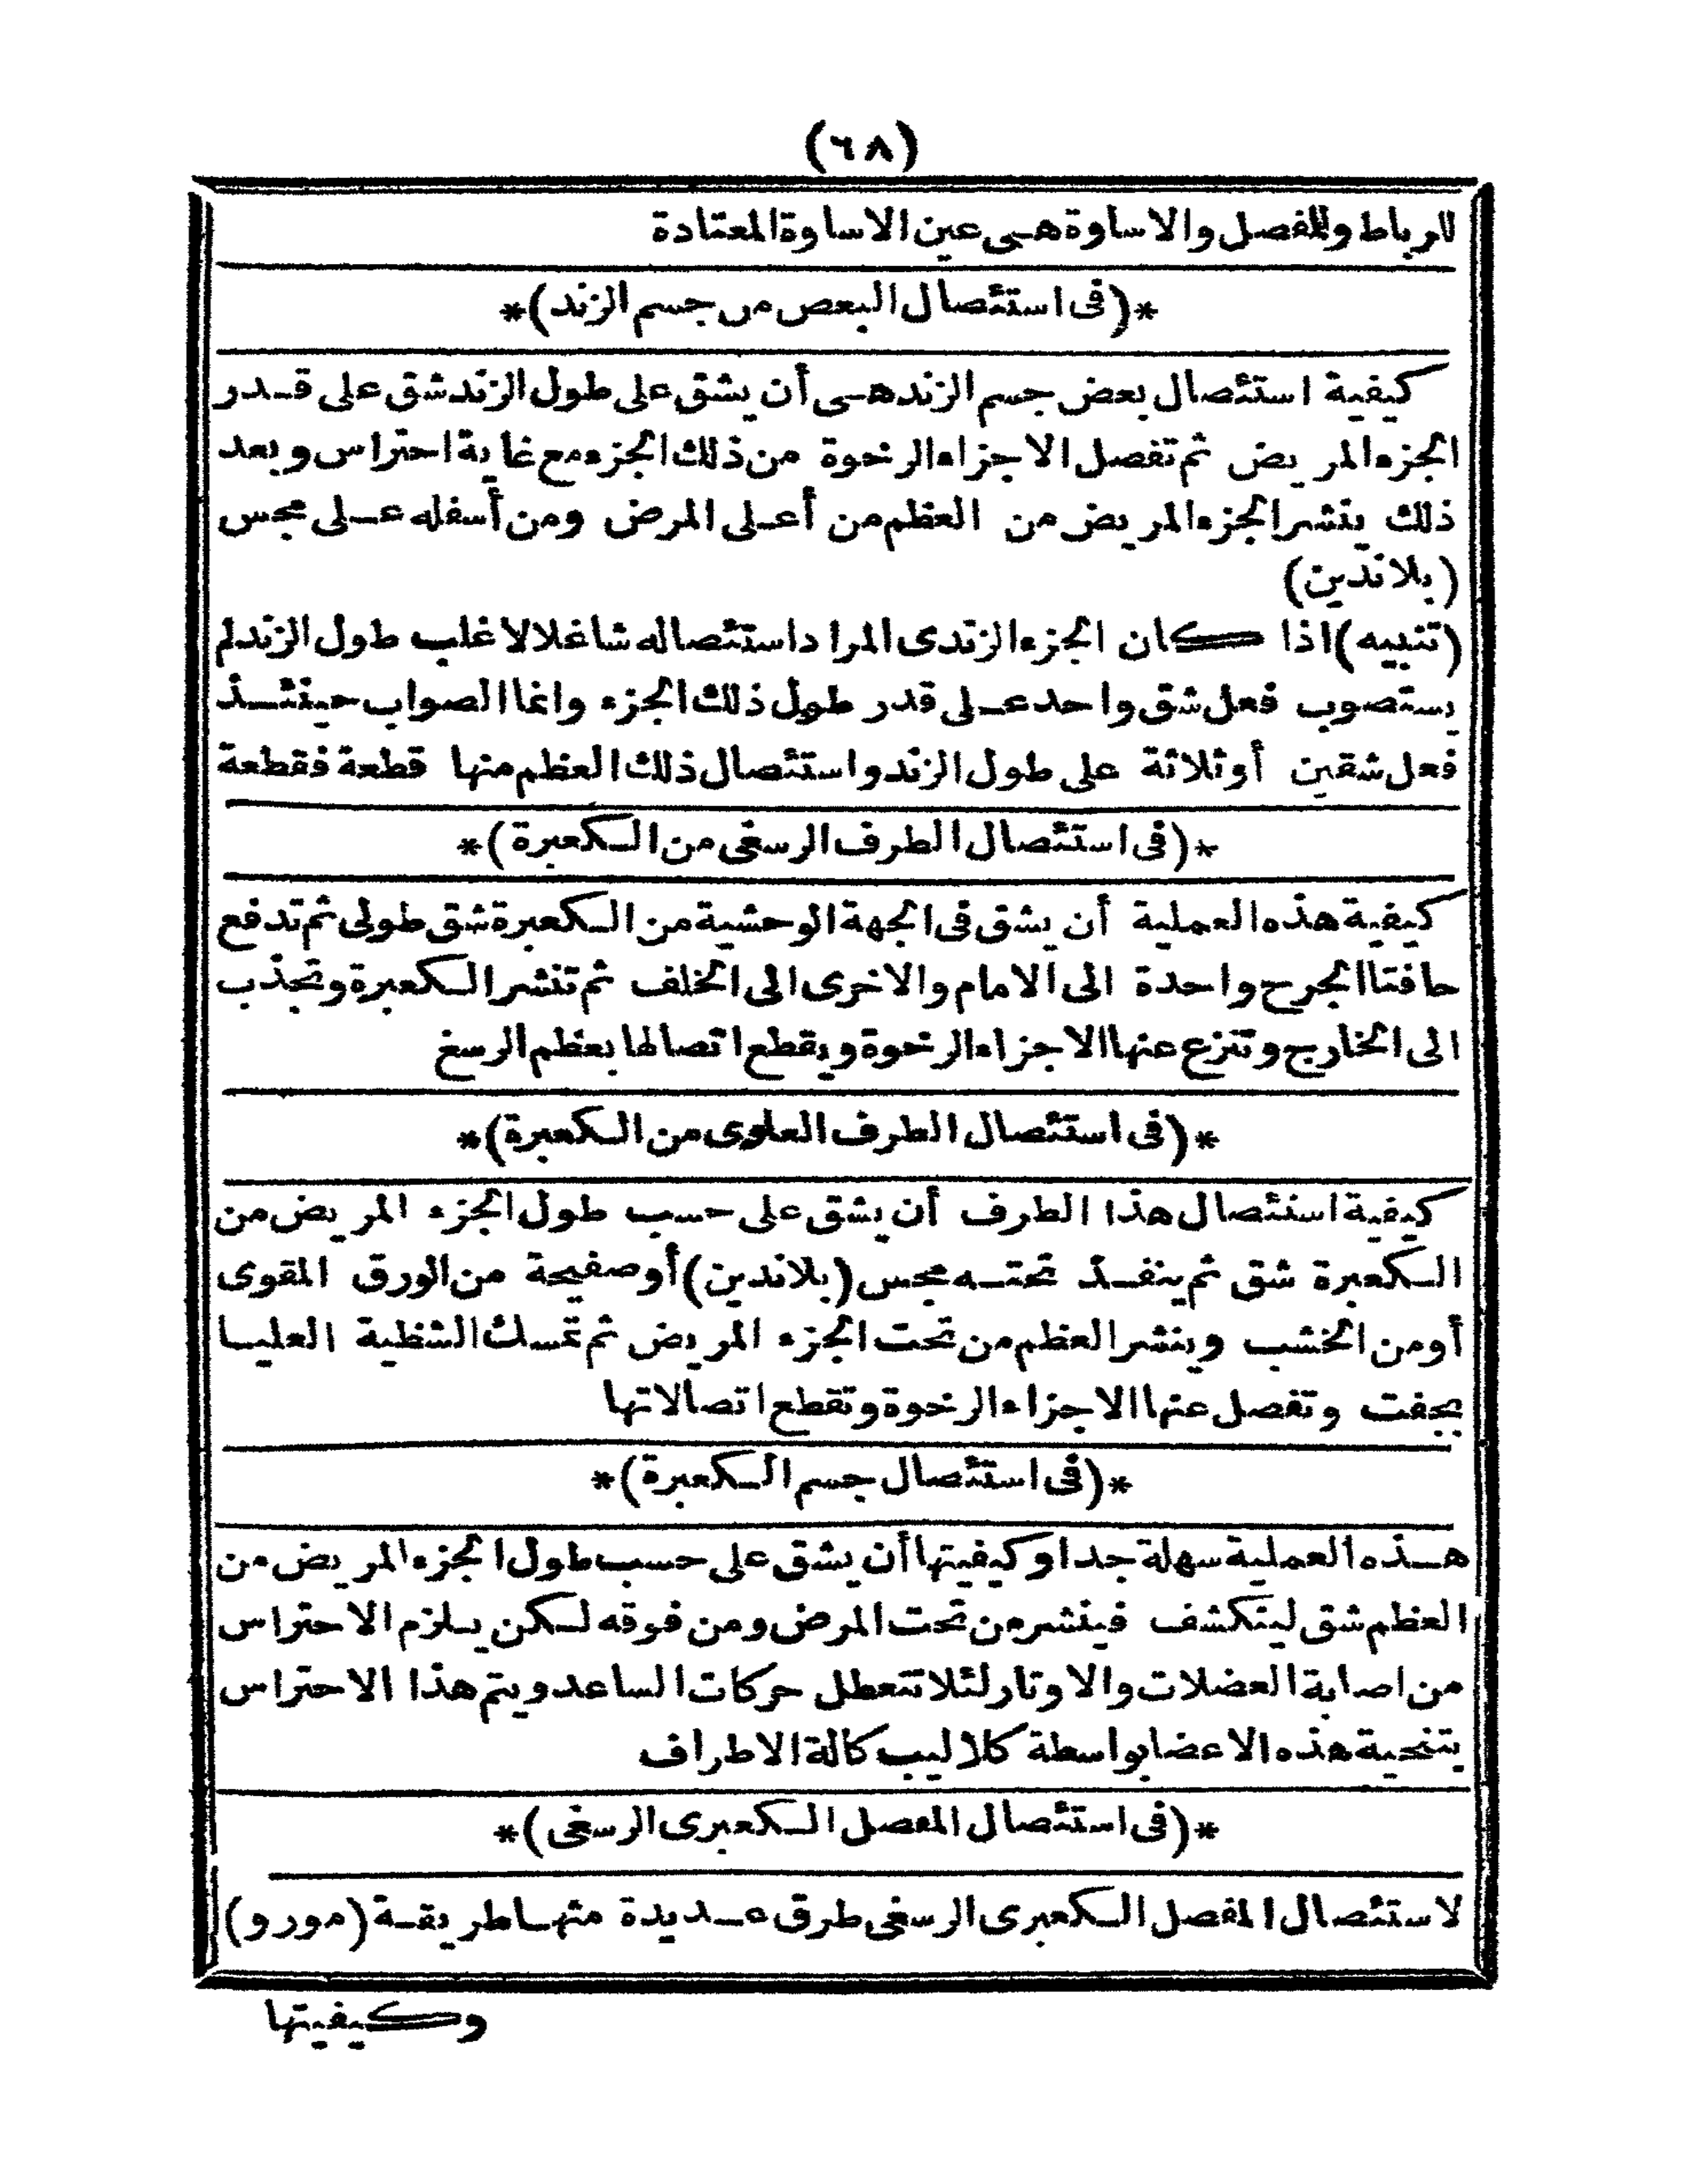 (٦٨)
للرباط وللمفصل والاساوة هى عين الاساوة المعتادة
*(فى استئصال البعض من جسم الزند)*
كيفية استئصال بعض جسم الزند هى أن يشق على طول الزند شق على قدر
الجزء المريض ثم تفصل الاجزاء الرخوة من ذلك الجزء مع غاية احتراس وبعد
ذلك ينشر الجزء المريض من العظم من أعلى المرض ومن أسفله على مجس
(بلاندين)
(تنبيه) اذا كان الجزء الزندى المراد استئصاله شاغلا لاغلب طول الزند لم
يستصوب فعل شق واحد على قدر طول ذلك الجزء وانما الصواب حينئذ
فعل شقين أو ثلاثة على طول الزند واستئصال ذلك العظم منها قطعة فقطعة
*(فى استئصال الطرف الرسغى من الكعبرة)*
كيفية هذه العملية أن يشق فى الجهة الوحشية من الكعبرة شق طولى ثم تدفع
حافتا الجرح واحدة الى الامام والاخرى الى الخلف ثم تنشر الكعبرة وتجذب
الى الخارج وتنزع عنها الاجزاء الرخوة ويقطع اتصالها بعظم الرسغ
*(فى استئصال الطرف العلوى من الكعبرة)*
كيفية استئصال هذا الطرف أن يشق على حسب طول الجزء المريض من
الكعبرة شق ثم ينفذ تحته مجس (بلاندين) أو صفيحة من الورق المقوى
أو من الخشب وينشر العظم من تحت الجزء المريض ثم تمسك الشظية العليا
بجفت وتفصل عنها الاجزاء الرخوة وتقطع اتصالاتها
*(فى استئصال جسم الكعبرة)*
هذه العملية سهلة جدا وكيفيتها أن يشق على حسب طول الجزء المريض من
العظم شق لينكشف فينشر من تحت المرض ومن فوقه لكن يلزم الاحتراس
من اصابة العضلات والاوتار لئلا تتعطل حركات الساعد ويتم هذا الاحتراس
بتنحية هذه الاعضا بواسطة كلاليب كالة الاطراف
*(فى استئصال المفصل الكعبرى الرسغى)*
لاستئصال المفصل الكعبرى الرسغى طرق عديدة منها طريقة (مورو)
وكيفيتها